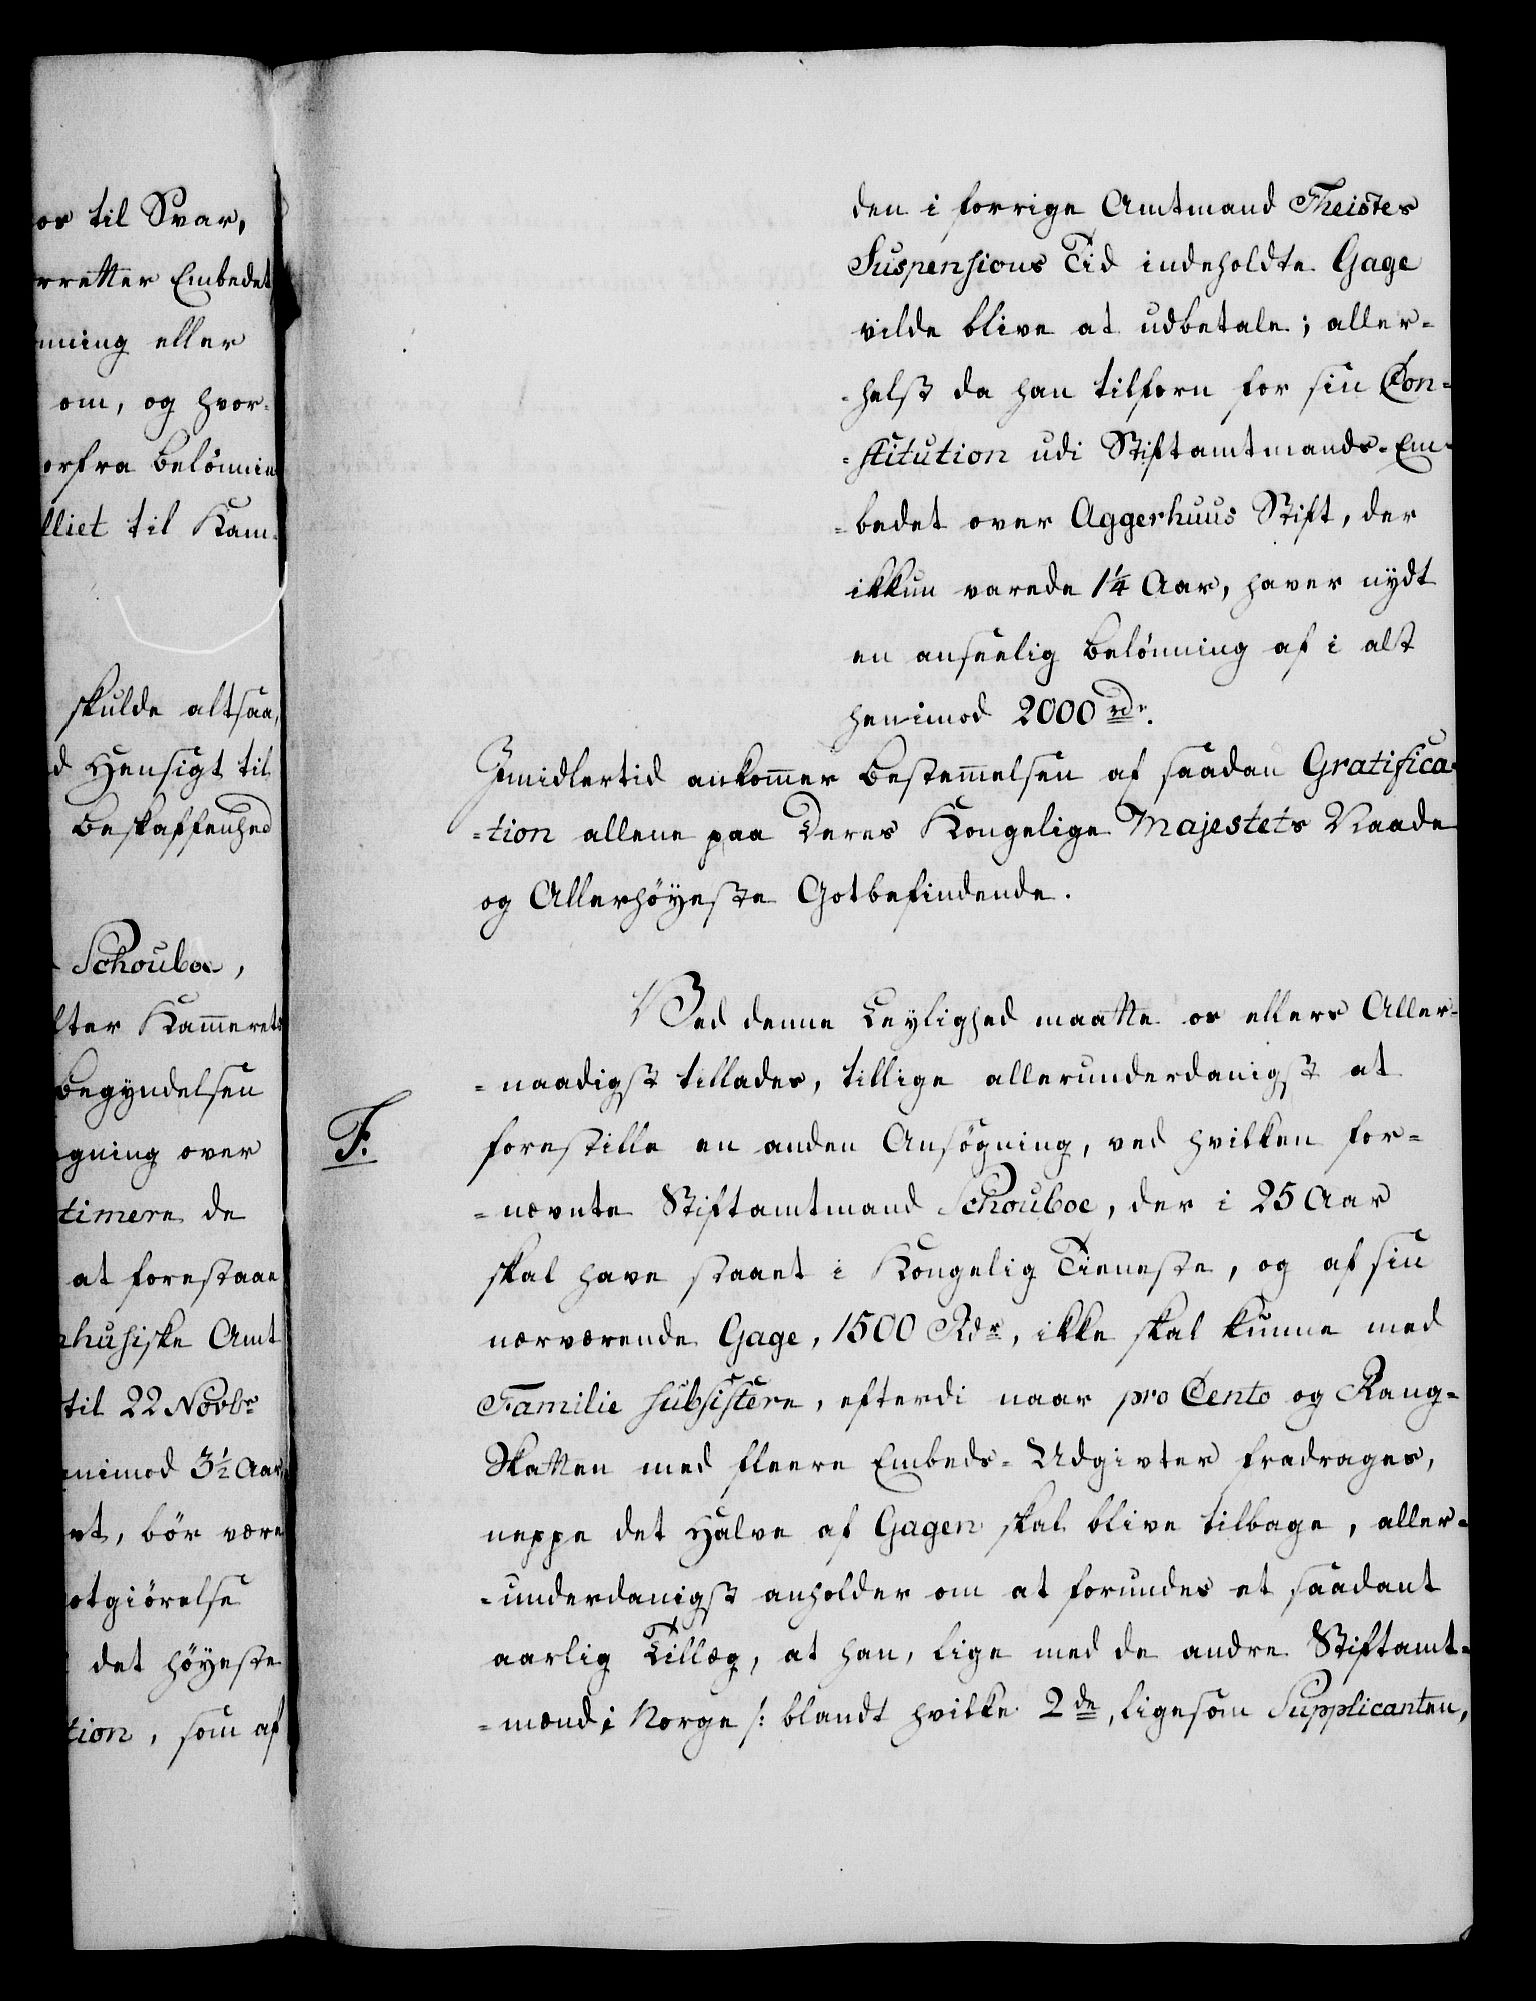 os til Svar,
rretter Embedet
nning eller
om, og hvor-
orfra Belønnin
lliet til Kam-
skulde altsaa,
d Hensigt til
Beskaffenhed
Schouboe,
lter Kammerets
Begyndelsen
gning over
timere de
at forestaae
huusiske Amt
til 22 Novbr
enimod 3½ Aar,
vt, bör være
otgiörelse
det höyeste
tion, som af
den i forrige Amtmand Theistes
Suspensions Tid indeholdte Gage
vilde blive at udbetale; aller-
-helst da han tilforn for sin Con-
-stitution udi Stiftamtmands-Em-
-bedet over Aggerhuus Stift, der
ikkun varede 1¼ Aar, haver nydt
en anseelig Belönning af i alt
henimod 2000 rdr.
Imidlertid ankommer Bestemmelsen af saadan Gratifica-
-tion allene paa Deres Kongelige Majestets Naade
og Allerhöyeste Gotbefindende.
Ved denne Leylighed maatte os ellers Aller-
-naadigst tillades, tillige allerunderdanigst at
F.
forestille en anden Ansögning, ved hvilken for-
-nævnte Stiftamtmand Schouboe, der i 25 Aar
skal have staaet i Kongelig Tieneste, og af sin
nærværende Gage, 1500 Rdr, ikke skal kunne med
Familie subsistere, efterdi naar pro Cento og Rang-
Skatten med fleere Embeds-Udgivter fradrages,
neppe det Halve af Gagen skal blive tilbage, aller-
-underdanigst anholder om at forundes et saadant
aarlig Tillæg, at han, lige med de andre Stiftamt-
-mænd i Norge /: blandt hvilke 2de, ligesom Supplicanten,